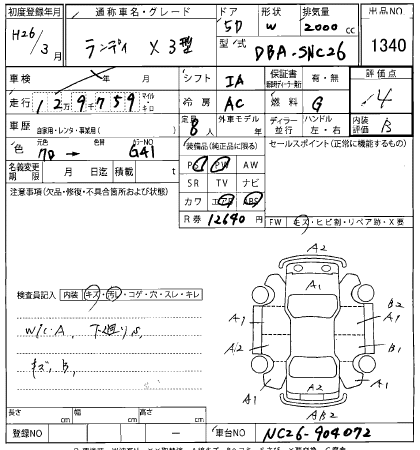 初度登録年月 通称車名・グレード ドア 形状 排気量 出品NO
H26/3月 ランディ X 3型 5D W 2000cc 1340
型/式 DBA-SNC26
車検 年 月 シフト IA 保証書 有・無 評価点
走行 12万9千759 マイル・キロ 冷房 AC 燃料 G 4
車歴 自家用・レンタ・事業用( ) 定員 8人 外車モデル 年 ディーラー 並行 ハンドル 左・右 内装評価 B
色 元色 色替 カラーNO G41 装備品(純正品に限る) セールスポイント(正常に機能するもの)
名義変更 月 日迄 積載 t PS PW AW
注意事項(欠品・修復・不具合箇所および状態) SR TV ナビ
カワ エアB ABS
R券 12640円
FW キズ・ヒビ割・リペア跡・X要
検査員記入 内装 キズ・汚レ・コゲ・穴・スレ・キレ
W/C・A、下廻りS、
キズB、
A2
A1
A1 B2
A1 A1
A2 B1
A1 A2 A1
AB2
長さ cm 幅 cm 高さ cm
登録NO ー 車台NO NC26-904072